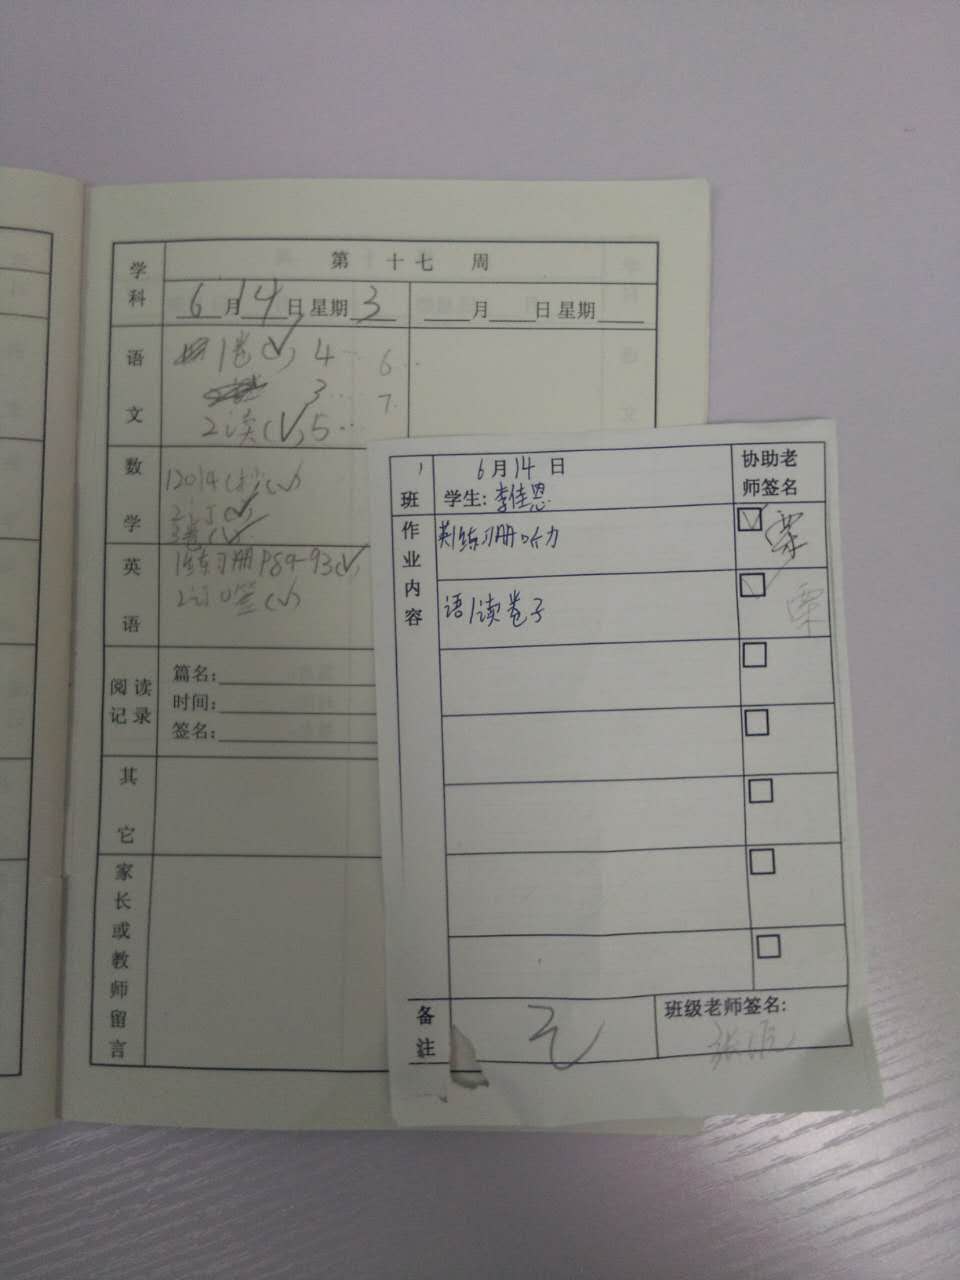 学科
第 十七 周
6月14日 星期3
月 日 星期
语文
1卷(√) 4… 6…
3… 7.
2读(√) 5…
数学
2订(√)
3卷(√)
英语
1练习册P89-93(√)
阅读记录
篇名:
时间:
签名:
其它
家长或教师留言
班
6月14日
学生:李佳恩
协助老师签名
作业内容
英1练习册听力
语1读卷子
备注
班级老师签名: